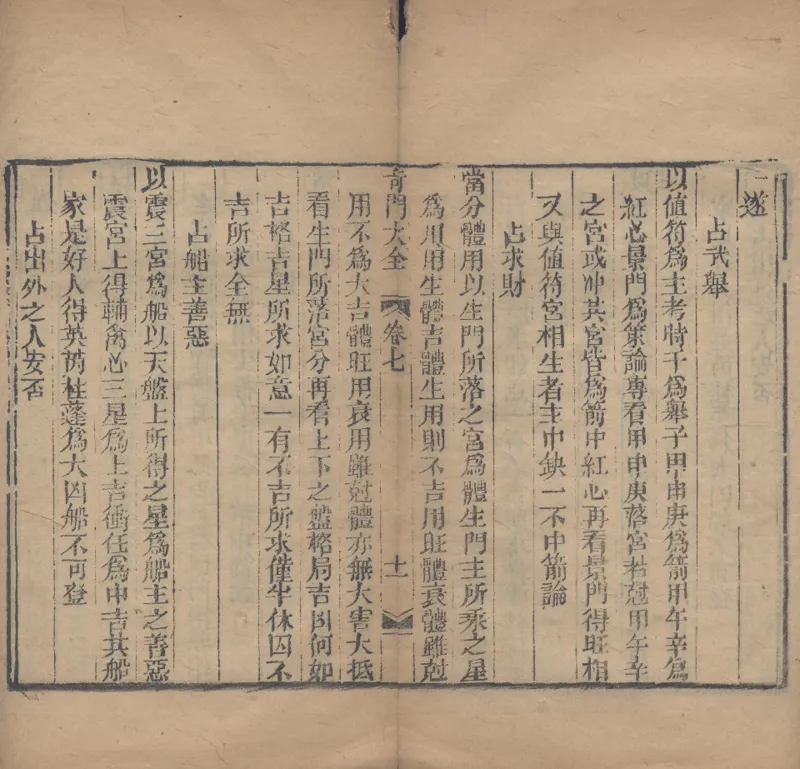 遂
占武舉
以值符爲主考時干爲舉子甲申庚爲箭甲午辛爲
紅心景門爲策論專看甲申庚落宮若尅甲午辛
之宮或冲其宮皆爲箭中紅心再看景門得旺相
又與値符宮相生者主中缺一不中箭論
占求財
當分體用以生門所落之宮爲體生門主所乘之星
爲用用生體吉體生用則不吉用旺體衰體雖尅
奇門大全 卷七 十一
用不爲大吉體旺用衰用雖尅體亦無大害大抵
看生門所落宮分再看上下之盤格局吉凶何如
吉格吉星所求如意一有不吉所求僅半休囚不
吉所求全無
占船主善惡
以震三宮爲船以天盤上所得之星爲船主之善惡
震宮上得輔禽心三星爲上吉衝任爲中吉其船
家是好人得英芮柱蓬爲大凶船不可登
占出外之人安否